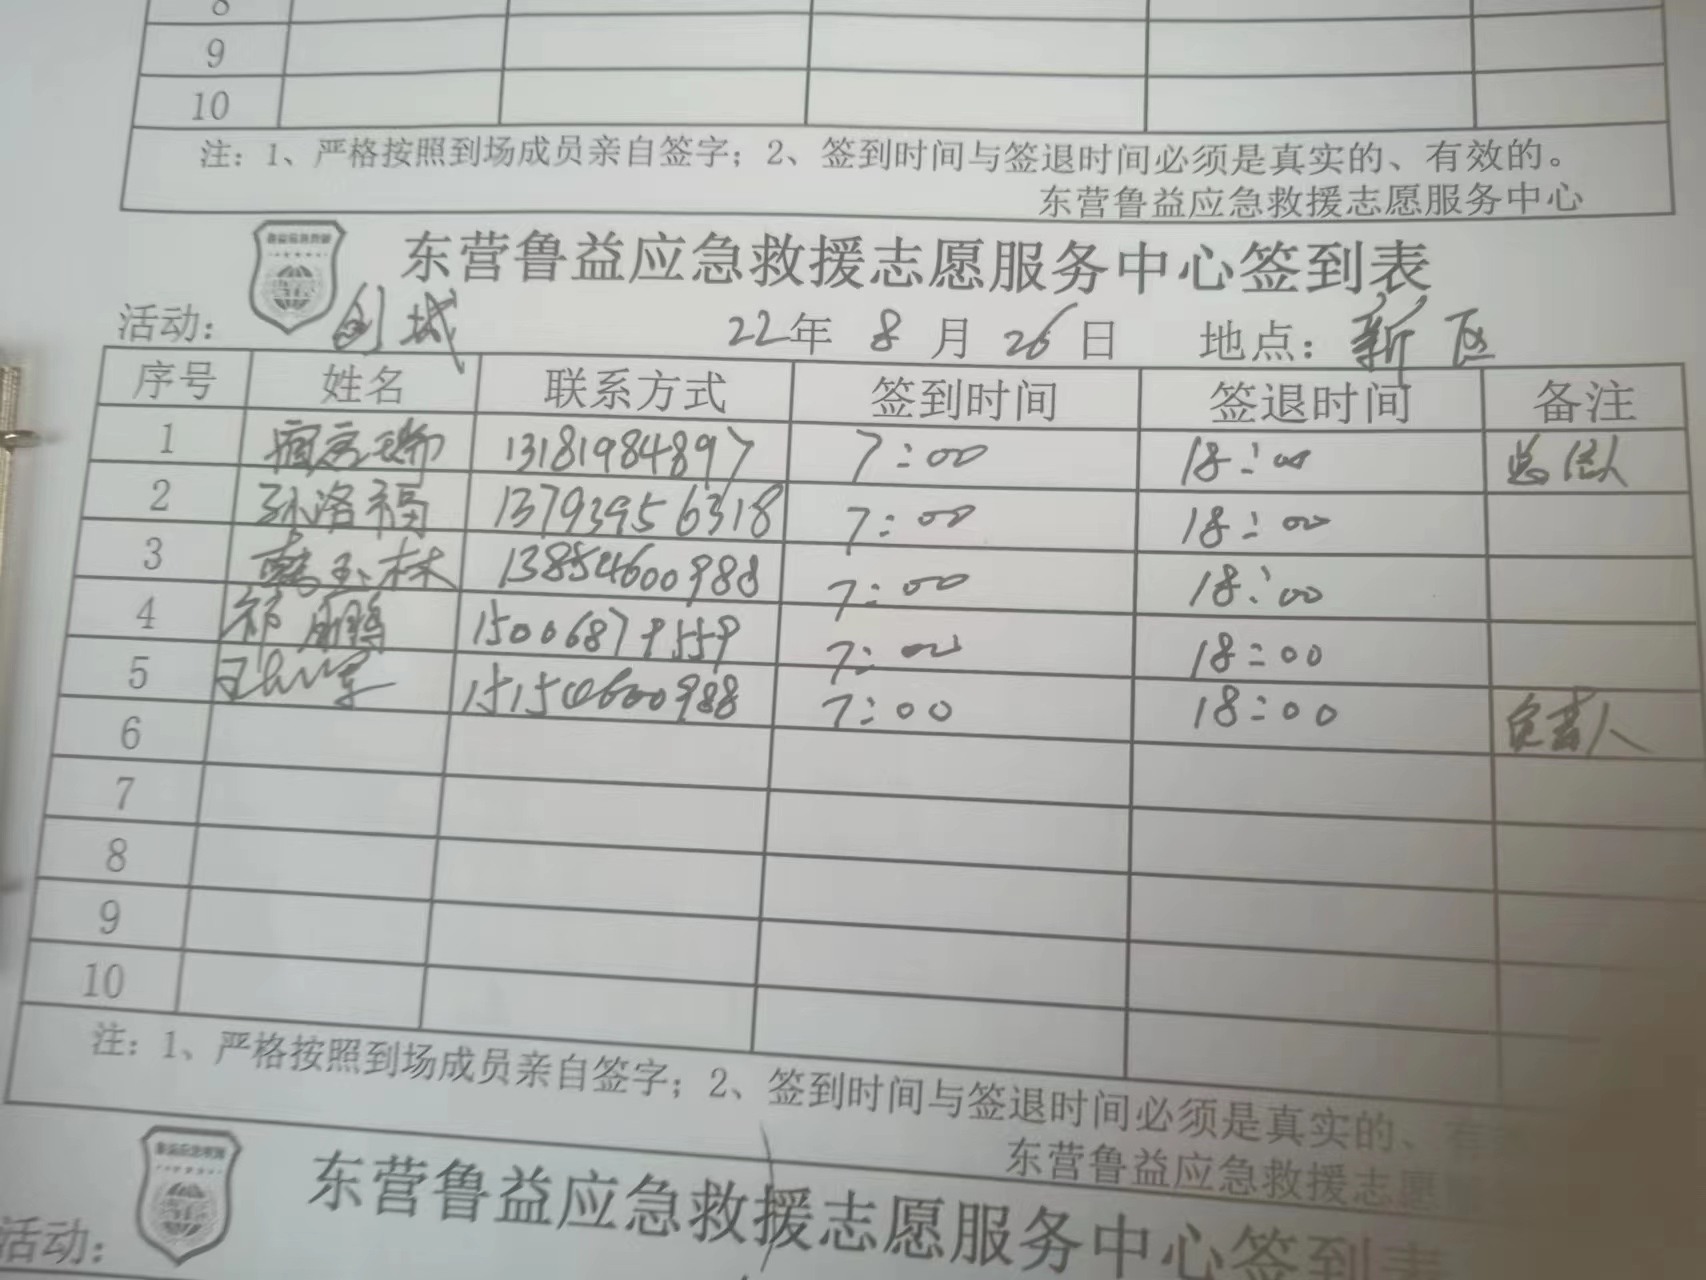 8
9
10
注：1、严格按照到场成员亲自签字；2、签到时间与签退时间必须是真实的、有效的。
东营鲁益应急救援志愿服务中心
东营鲁益应急救援志愿服务中心签到表
活动： 创城 22年 8月 26日 地点：新区
序号 姓名 联系方式 签到时间 签退时间 备注
1 13181984897 7:00 18:00
2 孙洛福 13793956318 7:00 18:00
3 韩玉林 13854600988 7:00 18:00
4 祁鹏 15006879559 7:00 18:00
5 15150600988 7:00 18:00 负责人
6
7
8
9
10
注：1、严格按照到场成员亲自签字；2、签到时间与签退时间必须是真实的、有
东营鲁益应急救援志愿
东营鲁益应急救援志愿服务中心签到表
活动：